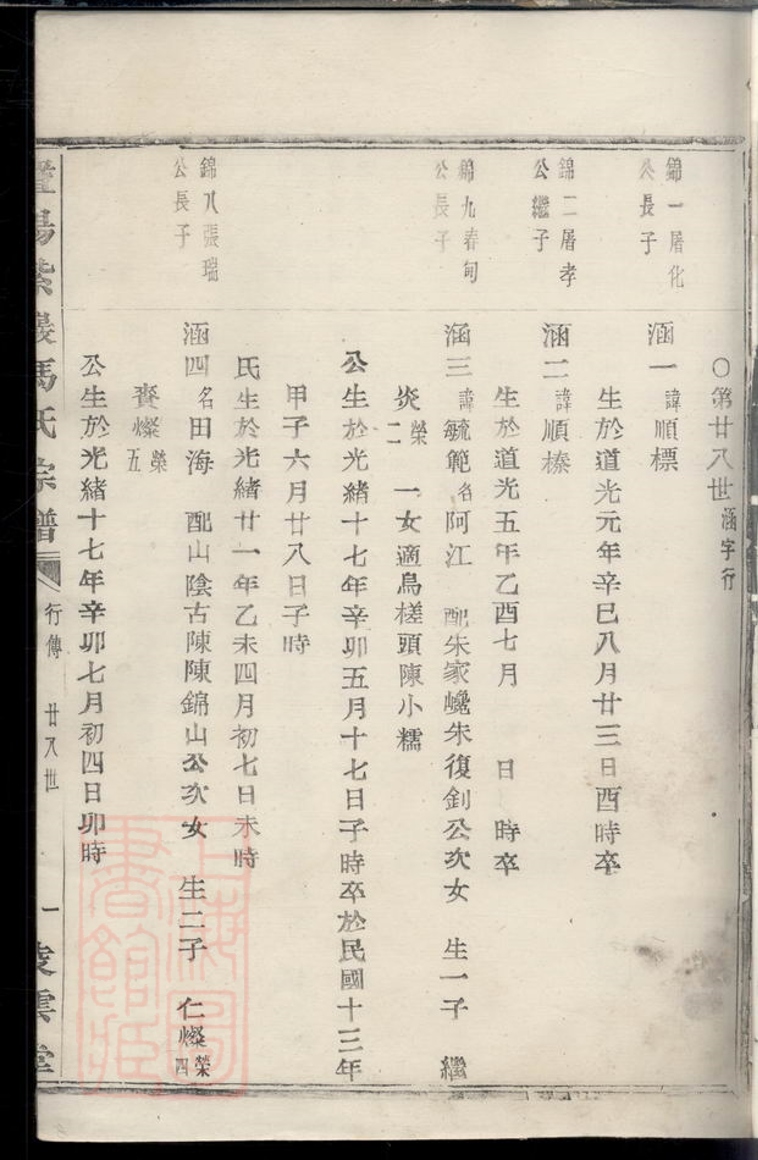 ○第廿八世涵字行
錦一屠化
公長子
涵一諱順標
生於道光元年辛巳八月廿三日酉時卒
錦二屠孝
公繼子
涵二諱順榛
生於道光五年乙酉七月 日 時卒
錦九春旬
公長子
涵三諱毓範名阿江 配朱家巉朱復釗公次女 生一子 繼
炎榮二 一女適鳥槎頭陳小糯
公生於光緒十七年辛卯五月十七日子時卒於民國十三年
甲子六月廿八日子時
氏生於光緒廿一年乙未四月初七日未時
錦八張瑞
公長子
涵四名田海 配山陰古陳陳錦山公次女 生二子 仁燦榮四
賚燦榮五
公生於光緒十七年辛卯七月初四日卯時
暨陽紫巖馬氏宗譜 行傳 廿八世 一 凌雲堂
上海圖書館藏